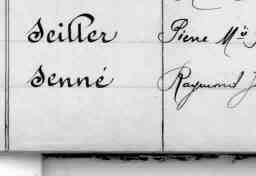 Seiller Pierre M
Senné Raymond J